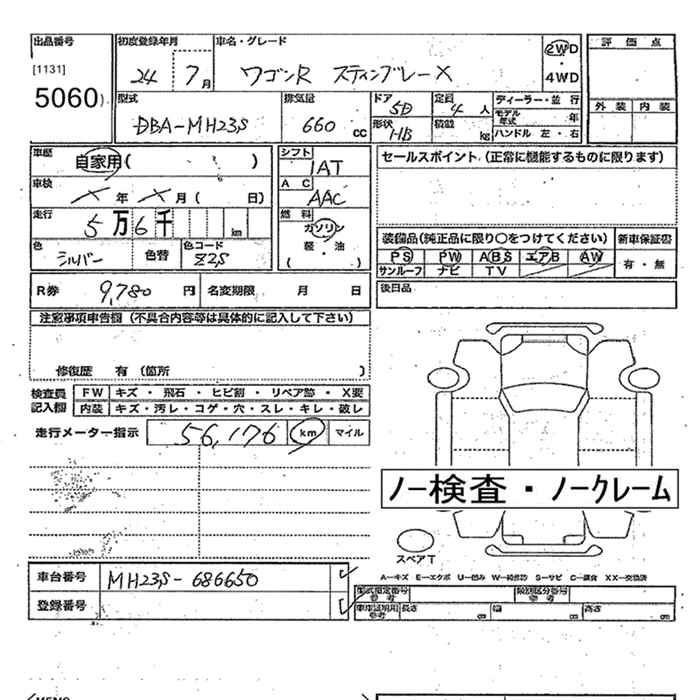 出品番号 初度登録年月 車名・グレード 評 価 点
[1131] 2WD
5060 24 7月 ワゴンR スティングレーX ・
4WD
外 装 内 装
型式 排気量 ドア 5D 定員 4 人 ディーラー・並 行
DBA-MH23S 660 cc 形状 HB 積載 kg モデル年式 年
ハンドル 左・右
車歴 自家用( ) シフト 1AT セールスポイント (正常に機能するものに限ります)
車検 X 年 X 月( 日) A C AAC
走行 5万6千 km 燃 料 ガソリン
軽・油
( )
装備品(純正品に限り○をつけてください) 新車保証書
色 シルバー 色替 色コード Z2S PS PW ABS エアB AW 有・無
サンルーフ ナビ TV
R券 9,780 円 名変期限 月 日 後日品
注意事項申告欄 (不具合内容等は具体的に記入して下さい)
修復歴 有 (箇所 )
検査員記入欄 FW キズ ・ 飛石 ・ ヒビ割 ・ リペア跡 ・ X要
内装 キズ・汚レ・コゲ・穴・スレ・キレ・破レ
走行メーター指示 56,176 km マイル
ノー検査・ノークレーム
スペアT
A—キズ E—エクボ U—凹み W—補修跡 S—サビ C—腐食 XX—交換済
車台番号 MH23S-686650
型式指定番号 参考 類別区分番号 参考
登録番号
車庫証明用 参考 長さ cm 幅 cm 高さ cm
MEMO